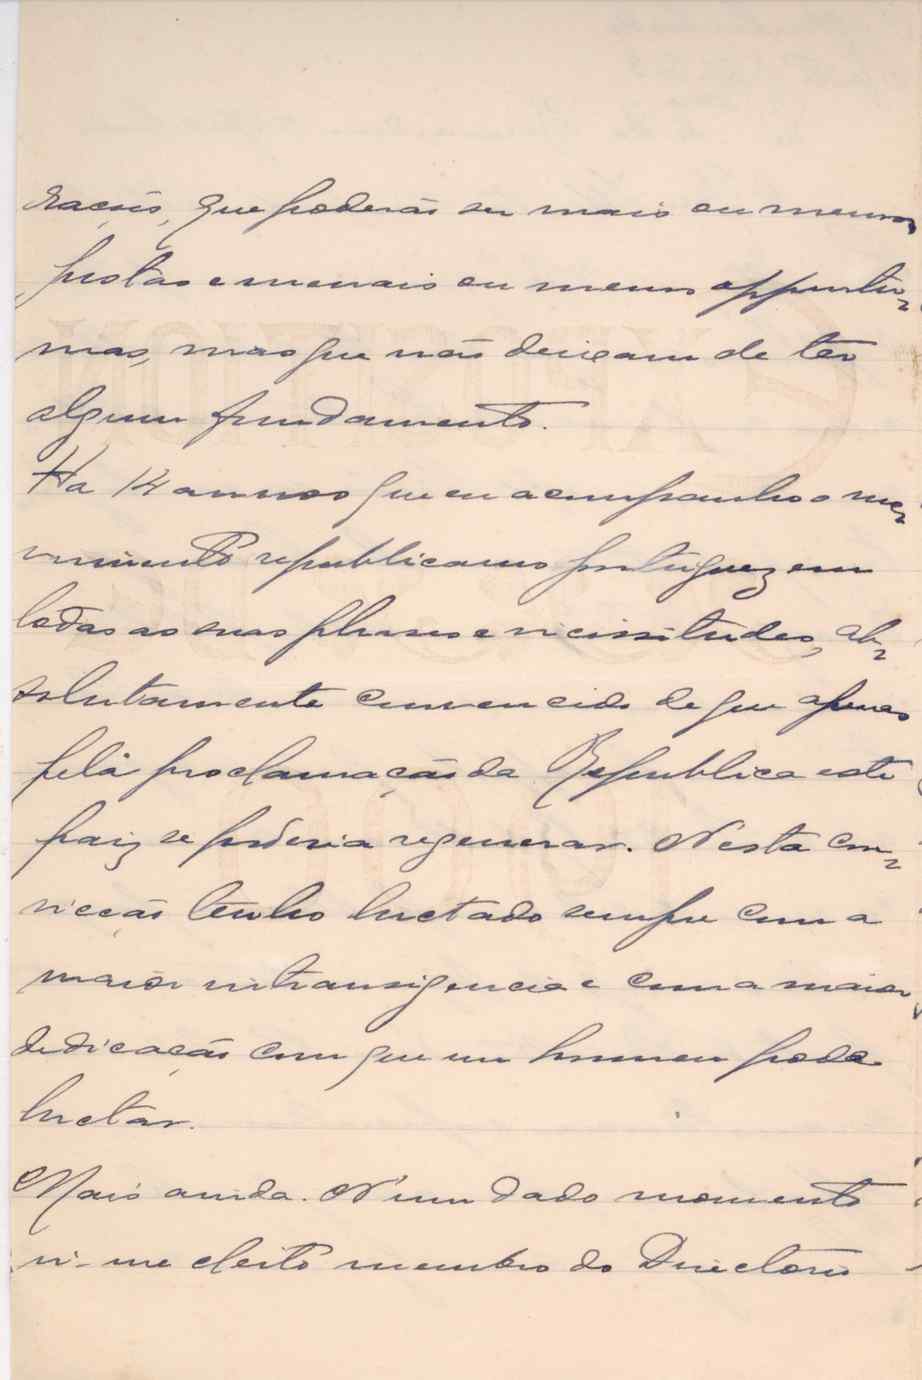 rações, que poderão ser mais ou menos
justas e menais ou menos opportu-
nas, mas que não deixam de ter
algum fundamento.
Ha 14 annos que eu acompanho o mo-
vimento republicano portuguez em
todas as suas phases e vicissitudes, ab-
solutamente convencido de que apenas
pela proclamação da Republica este
paiz se poderia regenerar. N'esta con-
vicção tenho luctado sempre com a
maior intransigencia e com a maior
dedicação com que um homem pode
luctar.
Mais ainda. N'um dado momento
vi-me eleito membro do Directorio